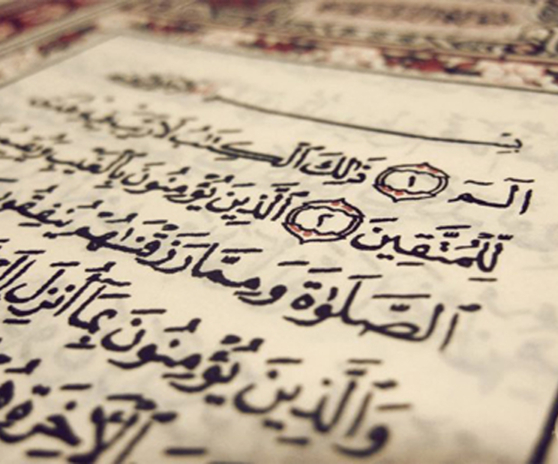 الٓمٓ ١ ذَٰلِكَ ٱلْكِتَٰبُ لَا رَيْبَ فِيهِ هُدًى
لِّلْمُتَّقِينَ ٢ ٱلَّذِينَ يُؤْمِنُونَ بِٱلْغَيْبِ
ٱلصَّلَوٰةَ وَمِمَّا رَزَقْنَٰهُمْ يُنفِقُونَ
وَٱلَّذِينَ يُؤْمِنُونَ بِمَآ أُنزِلَ